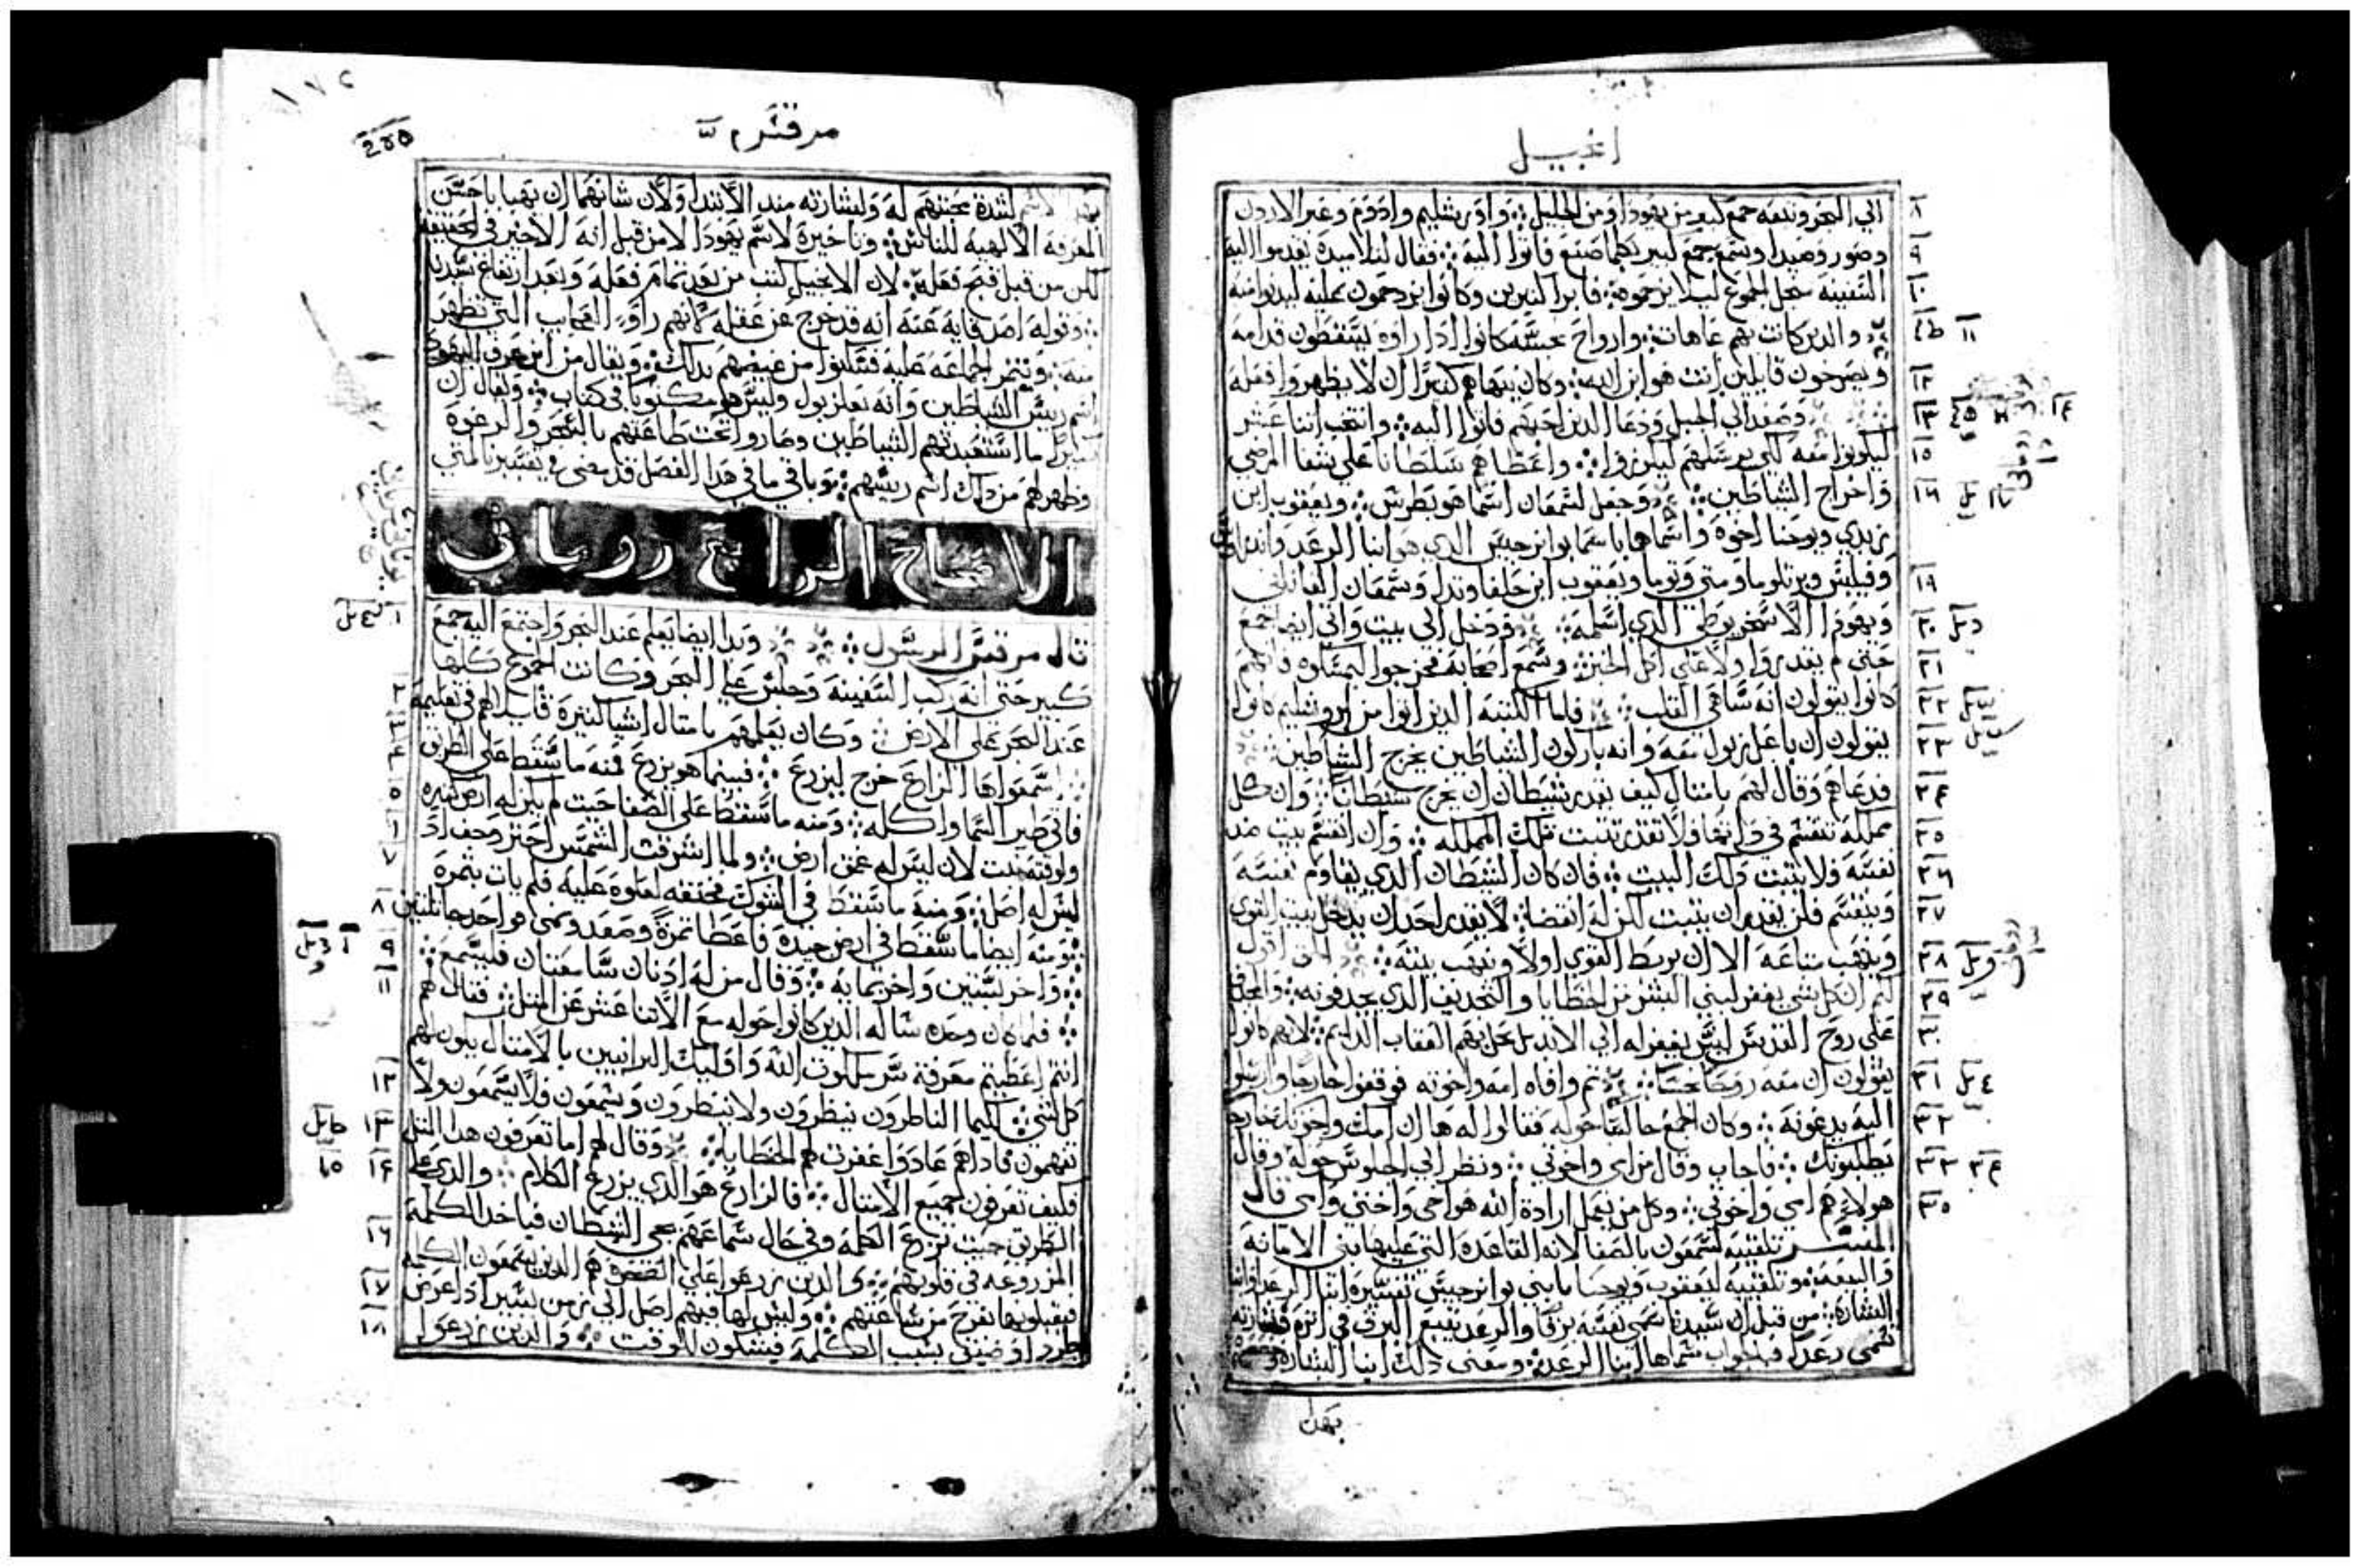 انجيل
الي البحر وتبعه جمع كبير من يهودا ومن الجليل ؞ واورشليم وادوم وعبر الاردن
وصور وصيدا وسمع جمع كبير بكلما صنع فاتوا اليه ؞ فقال لتلاميذه يقدموا اليه
السفينه من اجل الجموع ليلا يزحموه ؞ فابرا كثيرين وكانوا يزدحمون عليه ليدنوا منه
والدين كانت بهم عاهات ؞ وارواح نجسه كانوا ادا راوه يسقطون قدامه
ويصرخون قايلين انت هو ابن الله ؞ وكان ينهاهم كثيرا ان لا يظهروا فعله
وصعد الي الجبل ودعا الدين احبهم فاتوا اليه ؞ وانتخب اتنا عشر
ليكونوا معه لكي يرسلهم ليكرزوا ؞ واعطاهم سلطانا علي شفا المرضي
واخراج الشياطين ؞ وجعل لشمعان اسما هو بطرس ؞ ويعقوب ابن
زبدي ويوحنا اخوه واسماهما باسما بوانرجيس الدي هو ابنا الرعد واندراوس
وفيلبس وبرتلوما ومتي وتوما ويعقوب ابن حلفا وتدا وسمعان القاناني
ويهودا الاسخريوطي الدي اسلمه ؞ ودخل الي بيت واتي ايضا جمع
حتي لم يقدروا ولا علي اكل الخبز ؞ وسمع اصحابه فخرجوا ليمسكوه لانهم
كانوا يقولون انه ساهي القلب ؞ فاما الكتبه الدين اتوا من اورشليم كانوا
يقولون ان باعل زبول معه وانه باركون الشياطين يخرج الشياطين
فدعاهم وقال لهم بامتال كيف يقدر شيطان ان يخرج شيطانا ؞ وان كل
مملكه تنقسم في داتها ولا تقدر تتبت تلك المملكه ؞ وان انقسم بيت ضد
نفسه فلا يتبت دلك البيت ؞ فان كان الشيطان الدي يقاوم نفسه
وينقسم فلن يقدر ان يتبت لكن له انقضا ؞ لا يقدر احد ان يدخل بيت القوي
وينهب متاعه الا ان يربط القوي اولا وينهب بيته ؞ الحق اقول
لكم ان كل شي يغفر لبني البشر من الخطايا والتجديف الدي يجدفونه ؞
علي روح القدس ليس يغفر له الي الابد بل يحل بهم العقاب الدايم ؞ لانهم كانوا
يقولون ان معه روحا نجسا ؞ تم وافاه امه واخوته فوقفوا خارجا وارسلوا
اليه يدعونه ؞ وكان الجمع جالسا حوله فقالوا له ها ان امك واخوتك خارجا
يطلبونك ؞ فاجاب وقال من امي واخوتي ؞ ونظر الي الجلوس حوله وقال
هولاء هم امي واخوتي ؞ وكل من يعمل ارادة الله هو اخي واختي وامي قال
المفسر تلقيبه لشمعون بالصفا لانه القاعده التي عليها بني الامانه
والبيعه ؞ وتلقيبه ليعقوب ويوحنا بابني بوانرجيس تفسيره ابنا الرعد
البشاره ؞ من قبل ان سيدنا سمي نفسه برقا والرعد يتبع البرق في اتره
تسمي رعدا فبالجواب سماها ابنا الرعد ؞ ومعني دلك ابنا البشاره
بهدا
مرقس ٣
لشدة محبتهم له ولبشارته مند الابتدا ولان شانهما ان يهبا باحسن
المعرفه الالهيه للناس ؞ وتاخيره لاسم يهودا الا من قبل انه الاخير في الحقيقه
لكن من قبل قبح فعله ؞ لان الانجيل كتب من بعد تمام فعله وبعد ارتفاع سيدنا
وقوله اصدقايه عنه انه قد خرج عن عقله لانهم راو العجايب التي تظهر
منه ؞ وتنمر الجماعه عليه فسكنوا من غيضهم بدلك ؞ ويقال من اين عرف اليهود
اسم ريس الشياطين وانه بعلزبول وليس هو مكتوبا في كتاب ؞ ويقال ان
كتيرا ما استعبدتهم الشياطين وصاروا تحت طاعتهم بالسحر والرعوه
وظهر لهم من دلك اسم ريسهم ؞ وباقي ما في هدا الفصل قد مضي في تفسير بشاره متي
الاصحاح الرابع روماني
قال مرقس الرسول ؞ وبدا ايضا يعلم عند البحر واجتمع اليه جمع
كبير حتي انه ركب السفينه وجلس علي البحر وكانت الجموع كلها
عند البحر علي الارض ؞ وكان يعلمهم بامتال اشيا كتيرة قايلا لهم في تعليمه
اسمعوا ها الزارع خرج ليزرع ؞ فبينما هو يزرع فمنه ما سقط علي الطريق
فاتي طير السما واكله ؞ ومنه ما سقط علي الصفا حيت لم يكن له ارض كتيره
ولوقته نبت لان ليس له عمق ارض ؞ ولما اشرقت الشمس احترق وجف اد
ليس له اصل ؞ ومنه ما سقط في الشوك فخنقه لعلوه عليه فلم يات بتمرة
ومنه ايضا ما سقط في ارض جيده فاعطا تمرة وصعد ونمي فواحد جا بتلتين
واخر بستين واخر بمايه ؞ وقال من له ادنان سامعتان فليسمع ؞
فلما كان وحده ساله الدين كانوا حوله مع الاتنا عشر عن المتل ؞ فقال لهم
انتم اعطيتم معرفة سر ملكوت الله واوليك البرانيين بالامتال يكون لهم
كل شي ؞ لكيما الناظرون ينظرون ولا ينظرون ويسمعون فلا يسمعون ولا
تفهمون فاداهم عادوا غفرت لهم الخطايا ؞ وقال لهم اما تعرفون هدا المتل
فكيف تعرفون جميع الامتال ؞ فالزارع هو الدي يزرع الكلام ؞ والدي علي
الطريق حيت تزرع الكلمه وفي حال سماعهم يجي الشيطان فياخد الكلمة
المزروعه في قلوبهم ؞ والدين زرعوا علي الصخره هم الدين يسمعون الكلمه
فيقبلونها بفرح من ساعتهم ؞ وليس لها فيهم اصل الي زمن يسير ادا عرض
طرد او ضيق بسبب الكلمة فيشكون للوقت ؞ والدين زرعوا